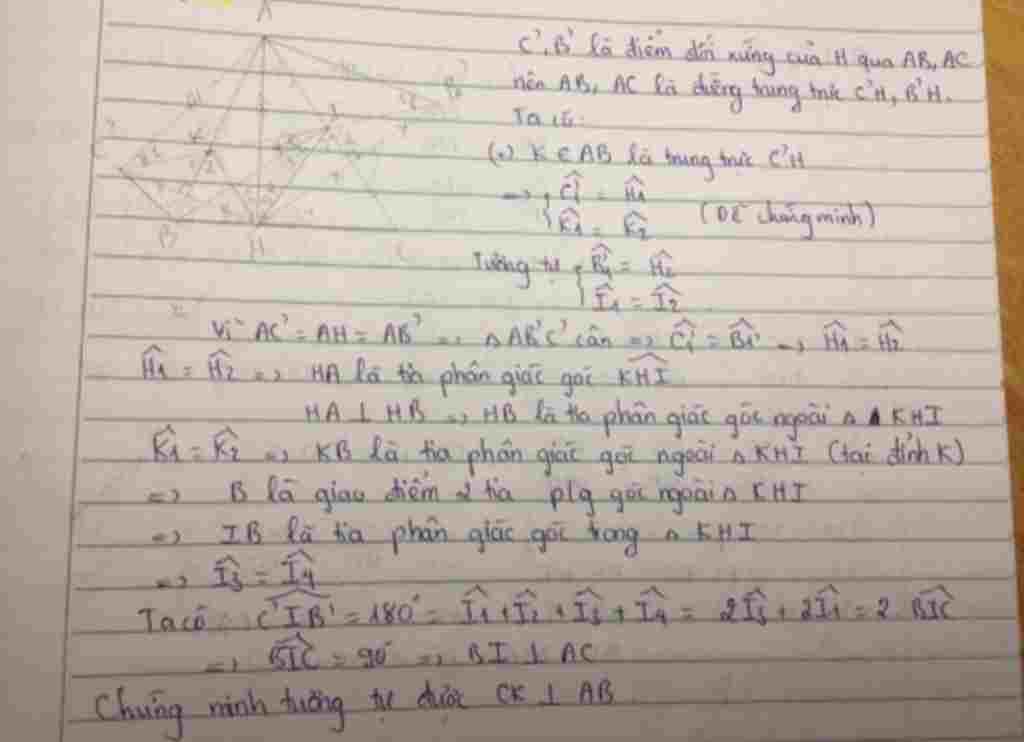 A
C', B' là điểm đối xứng của H qua AB, AC
nên AB, AC là đường trung trực C'H, B'H.
Ta có:
(.) K ∈ AB là trung trực C'H
=> { Ĉ'₁ = Ĥ₁
K̂₁ = K̂₂ (Dễ chứng minh)
Tương tự { B̂'₁ = Ĥ₂
Î₁ = Î₂
K
B
H
Vì AC' = AH = AB' => Δ AB'C' cân => Ĉ'₁ = B̂'₁ => Ĥ₁ = Ĥ₂
Ĥ₁ = Ĥ₂ => HA là tia phân giác góc KHI
HA ⊥ HB => HB là tia phân giác góc ngoài Δ KHI
K̂₁ = K̂₂ => KB là tia phân giác góc ngoài Δ KHI (tại đỉnh K)
=> B là giao điểm 2 tia p/g góc ngoài Δ KHI
=> IB là tia phân giác góc trong Δ KHI
=> Î₃ = Î₄
Ta có: C'IB' = 180° = Î₁ + Î₂ + Î₃ + Î₄ = 2Î₃ + 2Î₁ = 2 BIC
=> BIC = 90° => BI ⊥ AC
Chứng minh tương tự được CK ⊥ AB